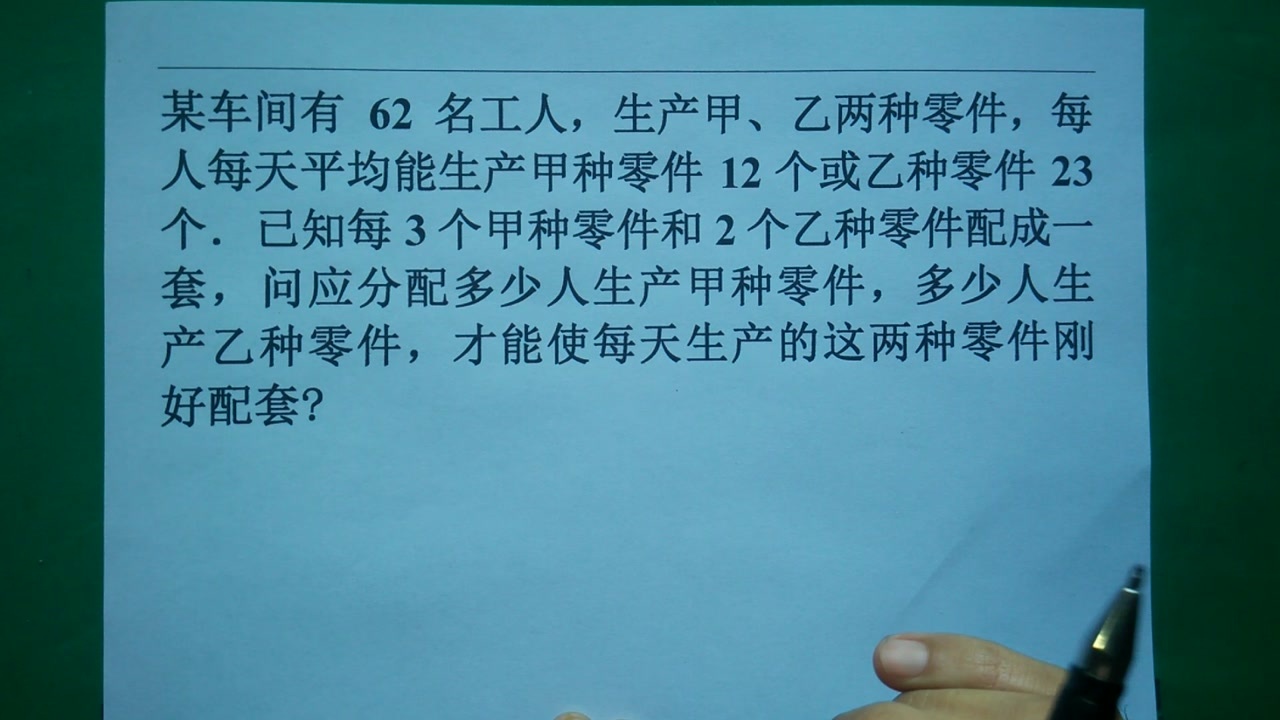 某车间有 62 名工人，生产甲、乙两种零件，每
人每天平均能生产甲种零件 12 个或乙种零件 23
个．已知每 3 个甲种零件和 2 个乙种零件配成一
套，问应分配多少人生产甲种零件，多少人生
产乙种零件，才能使每天生产的这两种零件刚
好配套?